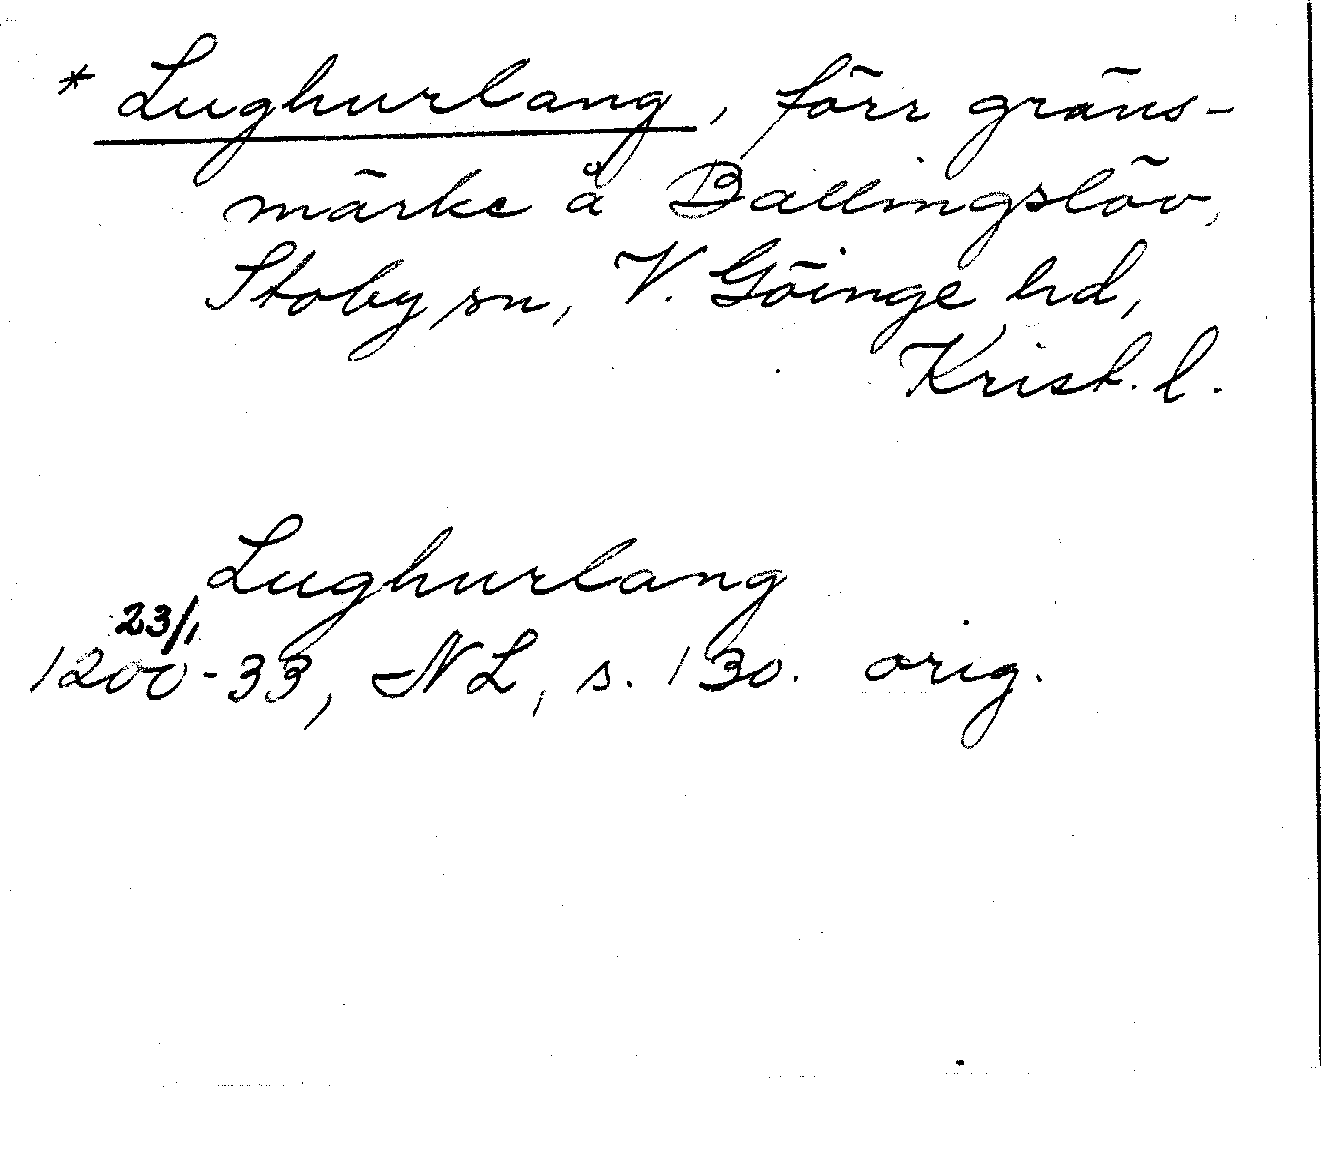 * Lughurlang, förr gräns-
märke å Ballingslöv,
Stoby sn, V. Göinge hd,
Krist. l.
Lughurlang
23/1
1200-33, NL, s. 130. orig.